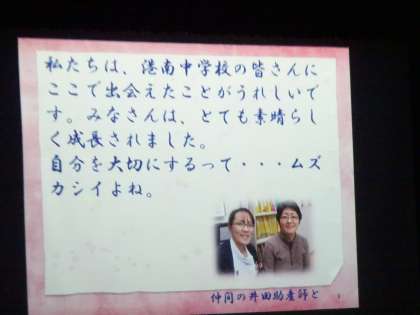 私たちは、港南中学校の皆さんに
ここで出会えたことがうれしいで
す。みなさんは、とても素晴らし
く成長されました。
自分を大切にするって・・・ムズ
カシイよね。
仲間の井田助産師と